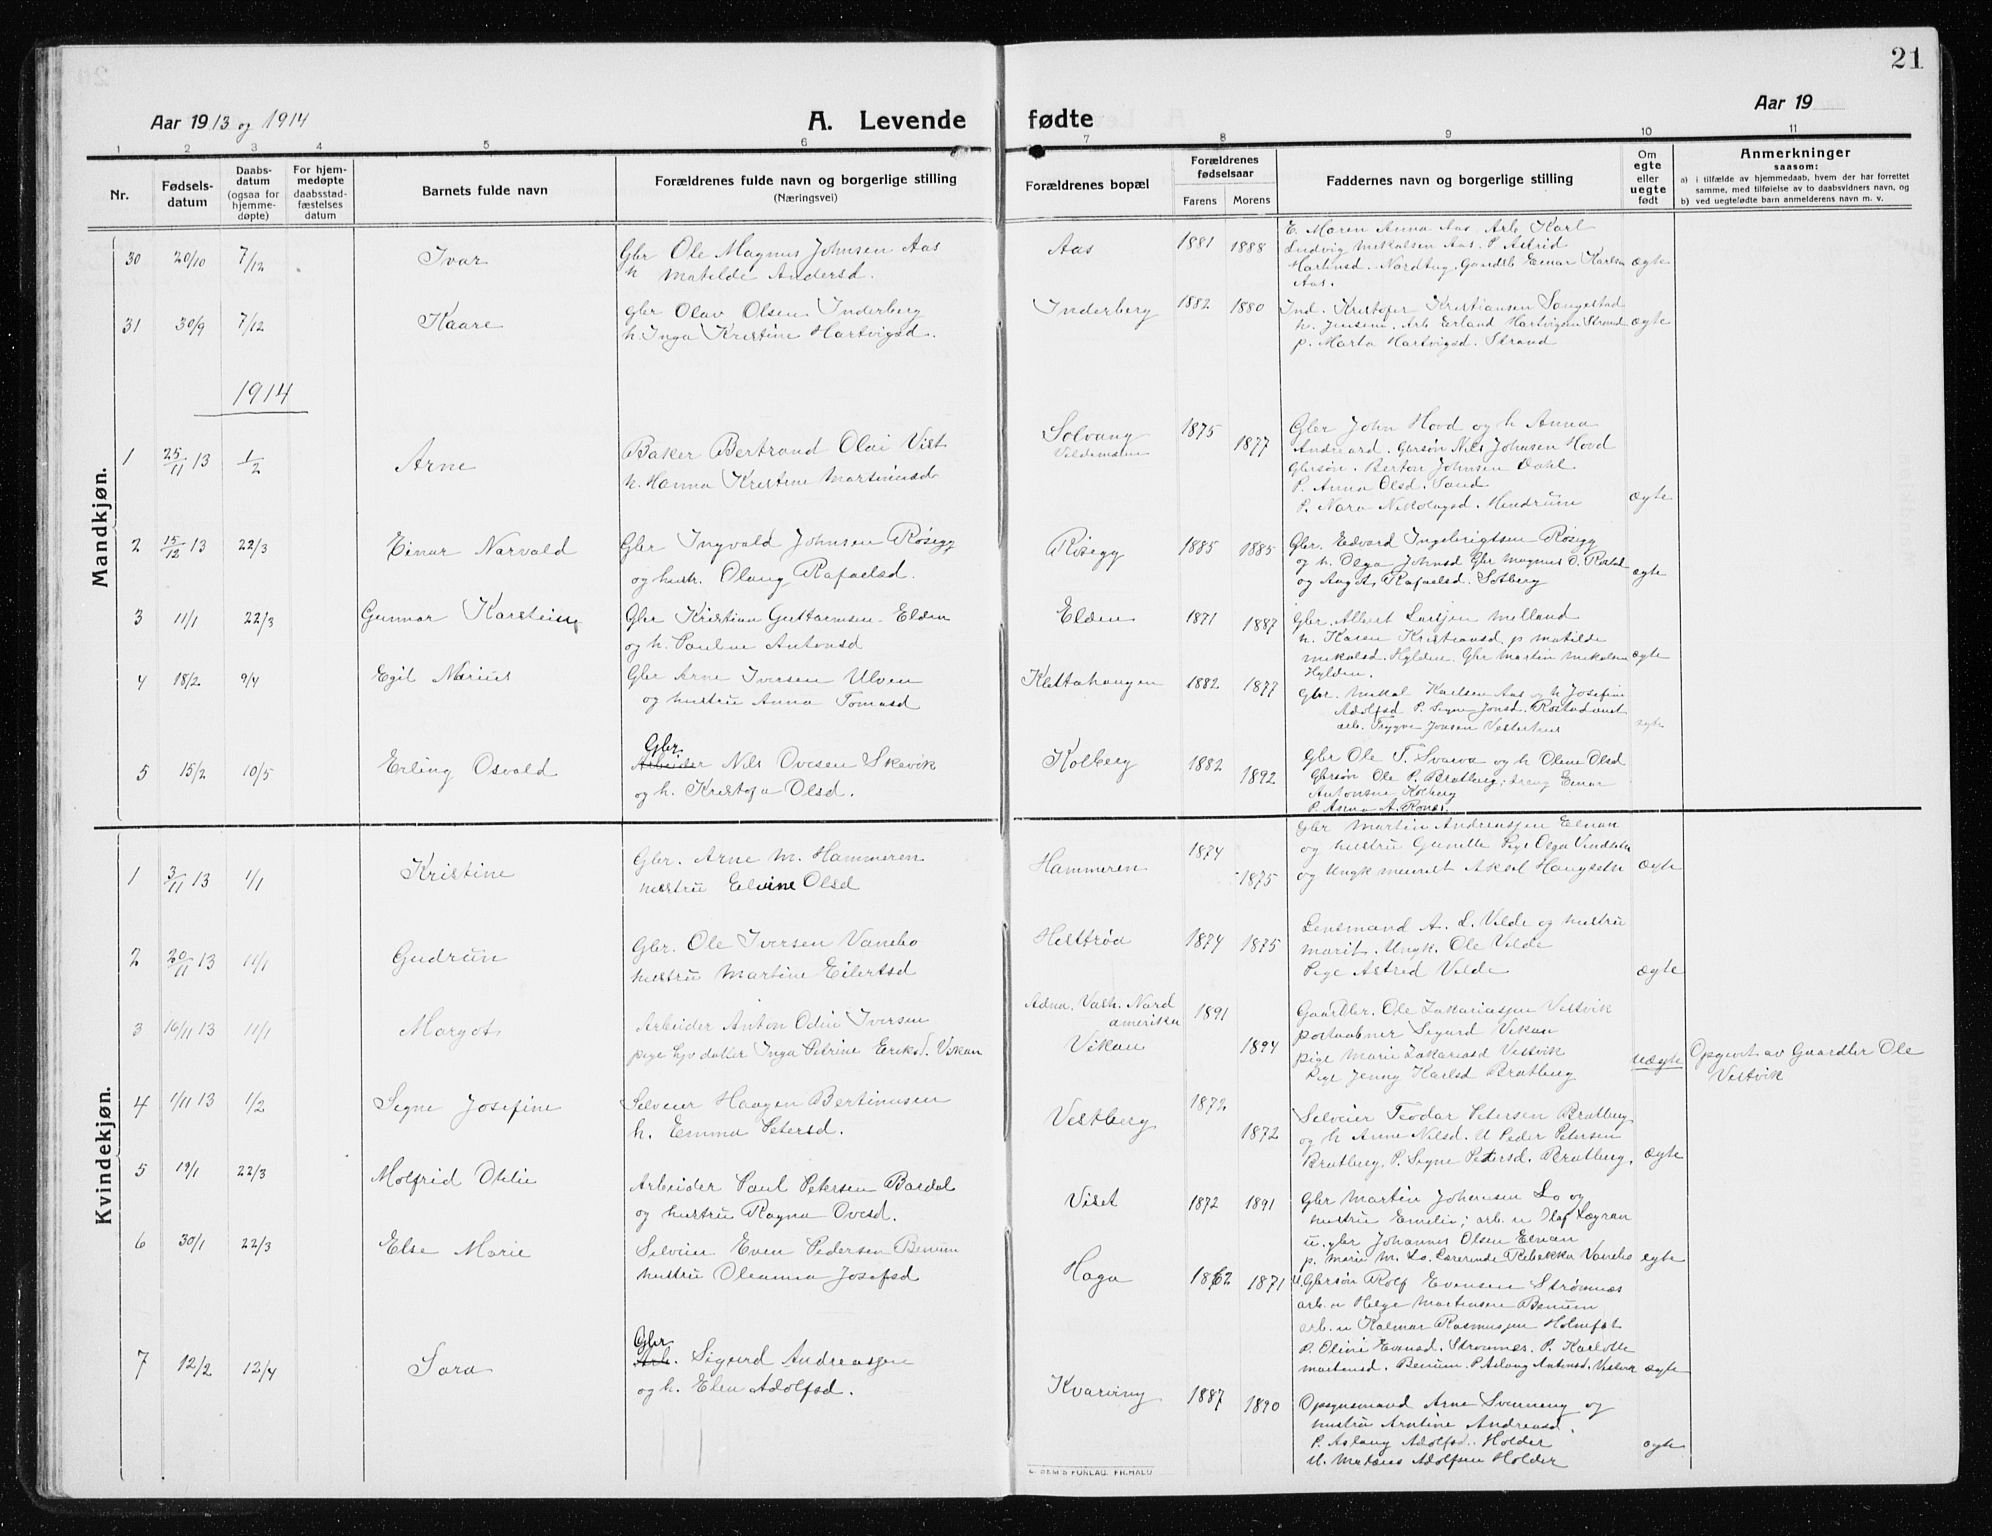 21
Aar 1913 og 1914
A. Levende fødte
Aar 19
1 2 3 4 5 6 7 8 9 10 11
Nr.
Fødsels-
datum
Daabs-
datum
(ogsaa for
hjemme-
døpte)
For hjem-
medøpte
daabsstad-
fæstelses
datum
Barnets fulde navn
Forældrenes fulde navn og borgerlige stilling
(Næringsvei)
Forældrenes bopæl
Forældrenes
fødselsaar
Farens Morens
Faddernes navn og borgerlige stilling
Om
egte
eller
uegte
født
Anmerkninger
saasom:
a) i tilfælde av hjemmedaab, hvem der har forrettet
samme, med tilføielse av to daabsvidners navn, og
b) ved uegtefødte barn anmelderens navn m. v.
Mandkjøn.
30 20/10 7/12 Ivar
Gbr Ole Magnus Johnsen Aas
h Matilde Andersd.
Aas 1881 1888
E. Maren Anna Aas Arb. Karl
Ludvig Mikalsen Aas. P. Astrid
Martinsd. Nordtug. Gaardb Einar Karlsen
Aas.
ægte
31 30/9 7/12 Kaare
Gbr Olav Olsen Inderberg
h. Inga Kristine Hartvigsd.
Inderberg 1882 1880
Ind. Kristofer Kristiansen Sangestad
h. Jensine. Arb. Erland Hartvigsen Strand
p. Marta Hartvigsd. Strand
ægte
1914
1 25/11 13 1/2 Arne
Baker Bertrand Olai Vist
h. Hanna Kristine Martinusd
Solvang
1875 1877
Gbr John Hovd og h Anna
Gbrsøn Nils Johnsen Hovd
Gbrsøn. Berton Johnsen Dahl
P. Anna Olsd. Sand
P. Nara Nikolaysd. Hindrum
ægte
2 15/12 13 22/3 Einar Narvald
Gbr Ingvald Johnsen Røsegg
og hustr. Olaug Rafaelsd.
Røsegg 1885 1885
Gbr. Edvard Ingebrigtsen Røsegg
og h. Olga Johnsd Gbr Magnus O.
og Aug. A. Rafaelsd. Solberg
ægte
3 11/1 22/3 Gunnar Karstein
Gbr Kristian Guttormsen Elden
og h. Pauline Antonsd
Elden 1871 1887
Gbr. Albert Larsen Melland
h. Karen Kristiansd p Matilde
Mikalsd. Hylden. Gbr Martin Mikalsen
Hylden.
ægte
4 18/2 9/4 Egil Marius
Gbr Arne Iversen Ulven
og hustru Anna Tomasd
Klettahaugen 1882 1877
Gbr. Mikal Karlsen Aas og h Josefine
Adolfsd P. Signe Jonsd.
arb. Trygve Jonsen
ægte
5 15/2 10/5 Erling Osvald
Gbr
Arbeider Nils Ovesen Skavik
og h. Kristofa Olsd.
Kolberg 1882 1892
Gbr Ole T. Svarva og h Oline Olsd
Gbrsøn Ole P. Bratberg; dreng Einar
Antonsen Kolberg
P. Anna A.
Kvindekjøn.
1 3/11 13 1/1 Kristine
Gbr. Arne M. Hammeren
hustru Elvine Olsd
Hammeren 1874 1875
Gbr Martin Andreasjen Elnan
og hustru Gunille Pige Olga
og Ungk Aksel
ægte
2 20/11 13 11/1 Gudrun
Gbr. Ole Iversen Vanebo
hustru Martine Eilertsd
Hestrøa 1874 1875
Lensmand A. L. Velde og hustru
Marit. Ungk. Ole Velde
Pige Astrid Velde
ægte
3 16/11 13 11/1 Margot
Arbeider Anton Odin Iversen
pige Inga Petrine Eriksd. Vikan
Adna. Vash. Nord
amerika
Vikan
1891 1894
Gaardbr. Ole Zakariasjen Vestvik
postaabner Sigurd Vikan
pige Marie Zakariasd Vestvik
Pige Jenny Karlsd Bratberg
uægte
Opgivet av Gaardbr Ole
Vestvik
4 1/11 13 1/2 Signe Josefine
Selveier Haagen Bertinusen
h. Emma Petersd.
Vestberg 1872 1872
Selveier Teodor Petersen Bratberg
og h Anne Nilsd. U Peder Petersen
Bratberg, P. Signe Petersd. Bratberg.
ægte
5 19/1 22/3 Molfrid Othlie
Arbeider Paul Petersen Bardal
og hustru Ragna Ovesd.
Viset 1872 1891
Gbr Martin Johansen Lo og
hustru Emelie; arb. u Olaf
u. gbr Johannes Olsen Elnan
p. Marie M. Lo. Lærerinde Rebekka Vanebo
egte
6 30/1 22/3 Else Marie
Selveier Even Pedersen Benum
hustru Oleanna Josefsd
Haga 1862 1871
U. Gbrsøn Rolf Evensen Strømnes
arb. u Helge Martinsen Benum
arb. u Kalmar Rasmusjen Holmset
P. Olivi Evensd. Strømnes. P. Karlotte
Martensd. Benum. P Aslaug Antonsd.
ægte
7 12/2 13/4 Sara
Gbr
Arb. Sigurd Andreasjen
og h. Elen Adolfsd.
Kvarving 1887 1890
Opsynsmand Arne Svenning og
hustru Arntine Andreasd.
P. Aslaug Adolfsd. Holder
U. Adolfsen Holder
ægte